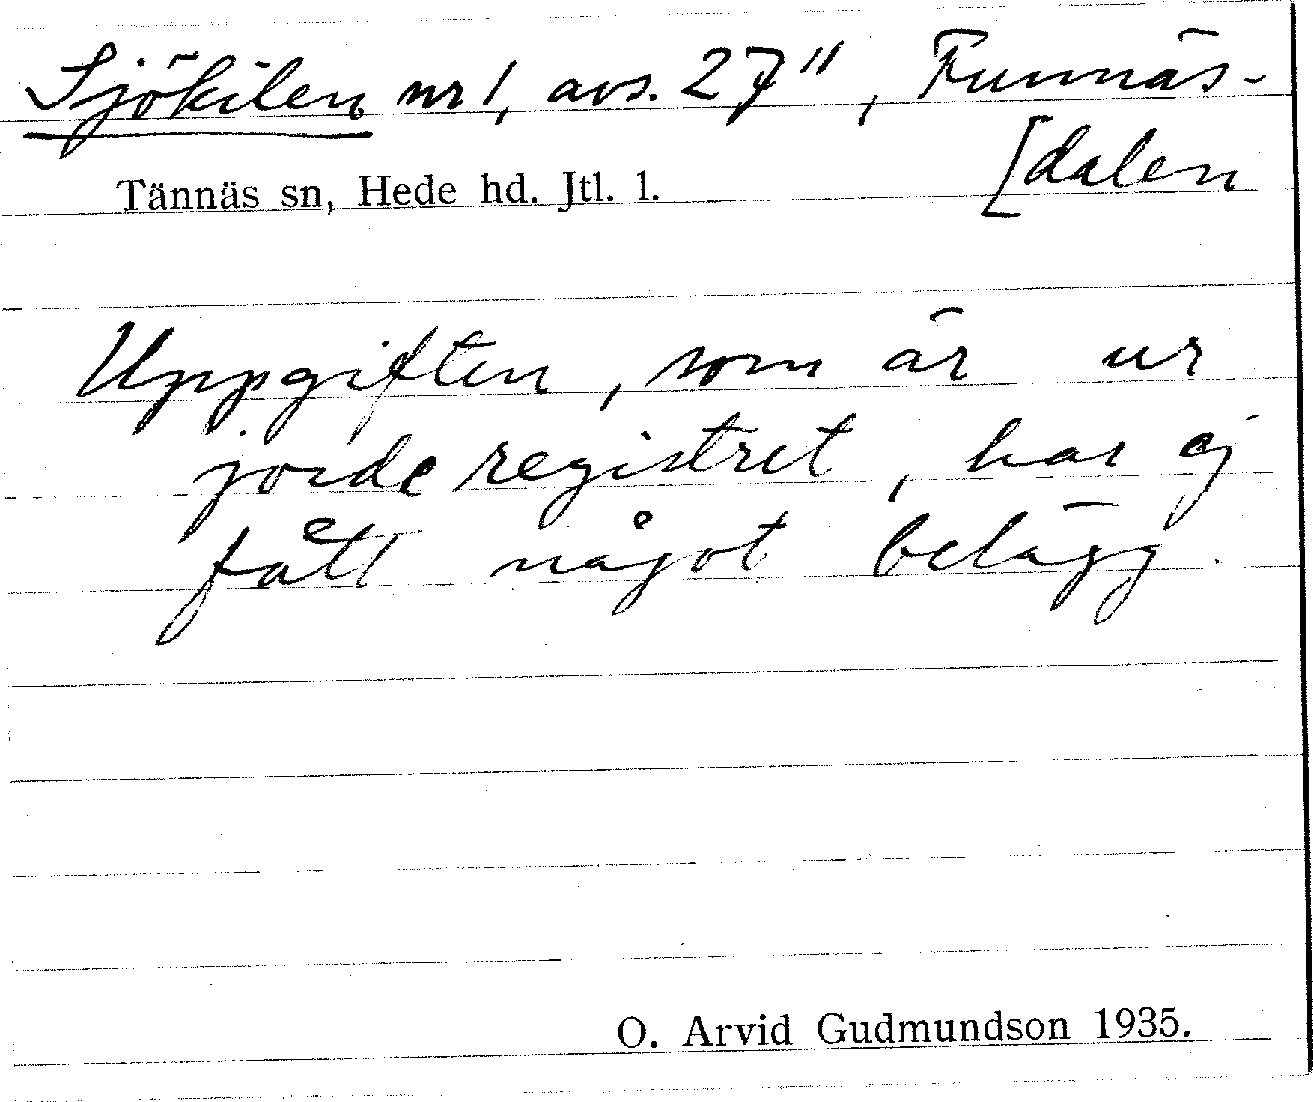 Sjökilen nr 1, avs. 27", Funnäs-
[dalen
Tännäs sn, Hede hd. Jtl. l.
Uppgiften, som är ur
jorderegistret, har ej
fått något belägg.
O. Arvid Gudmundson 1935.